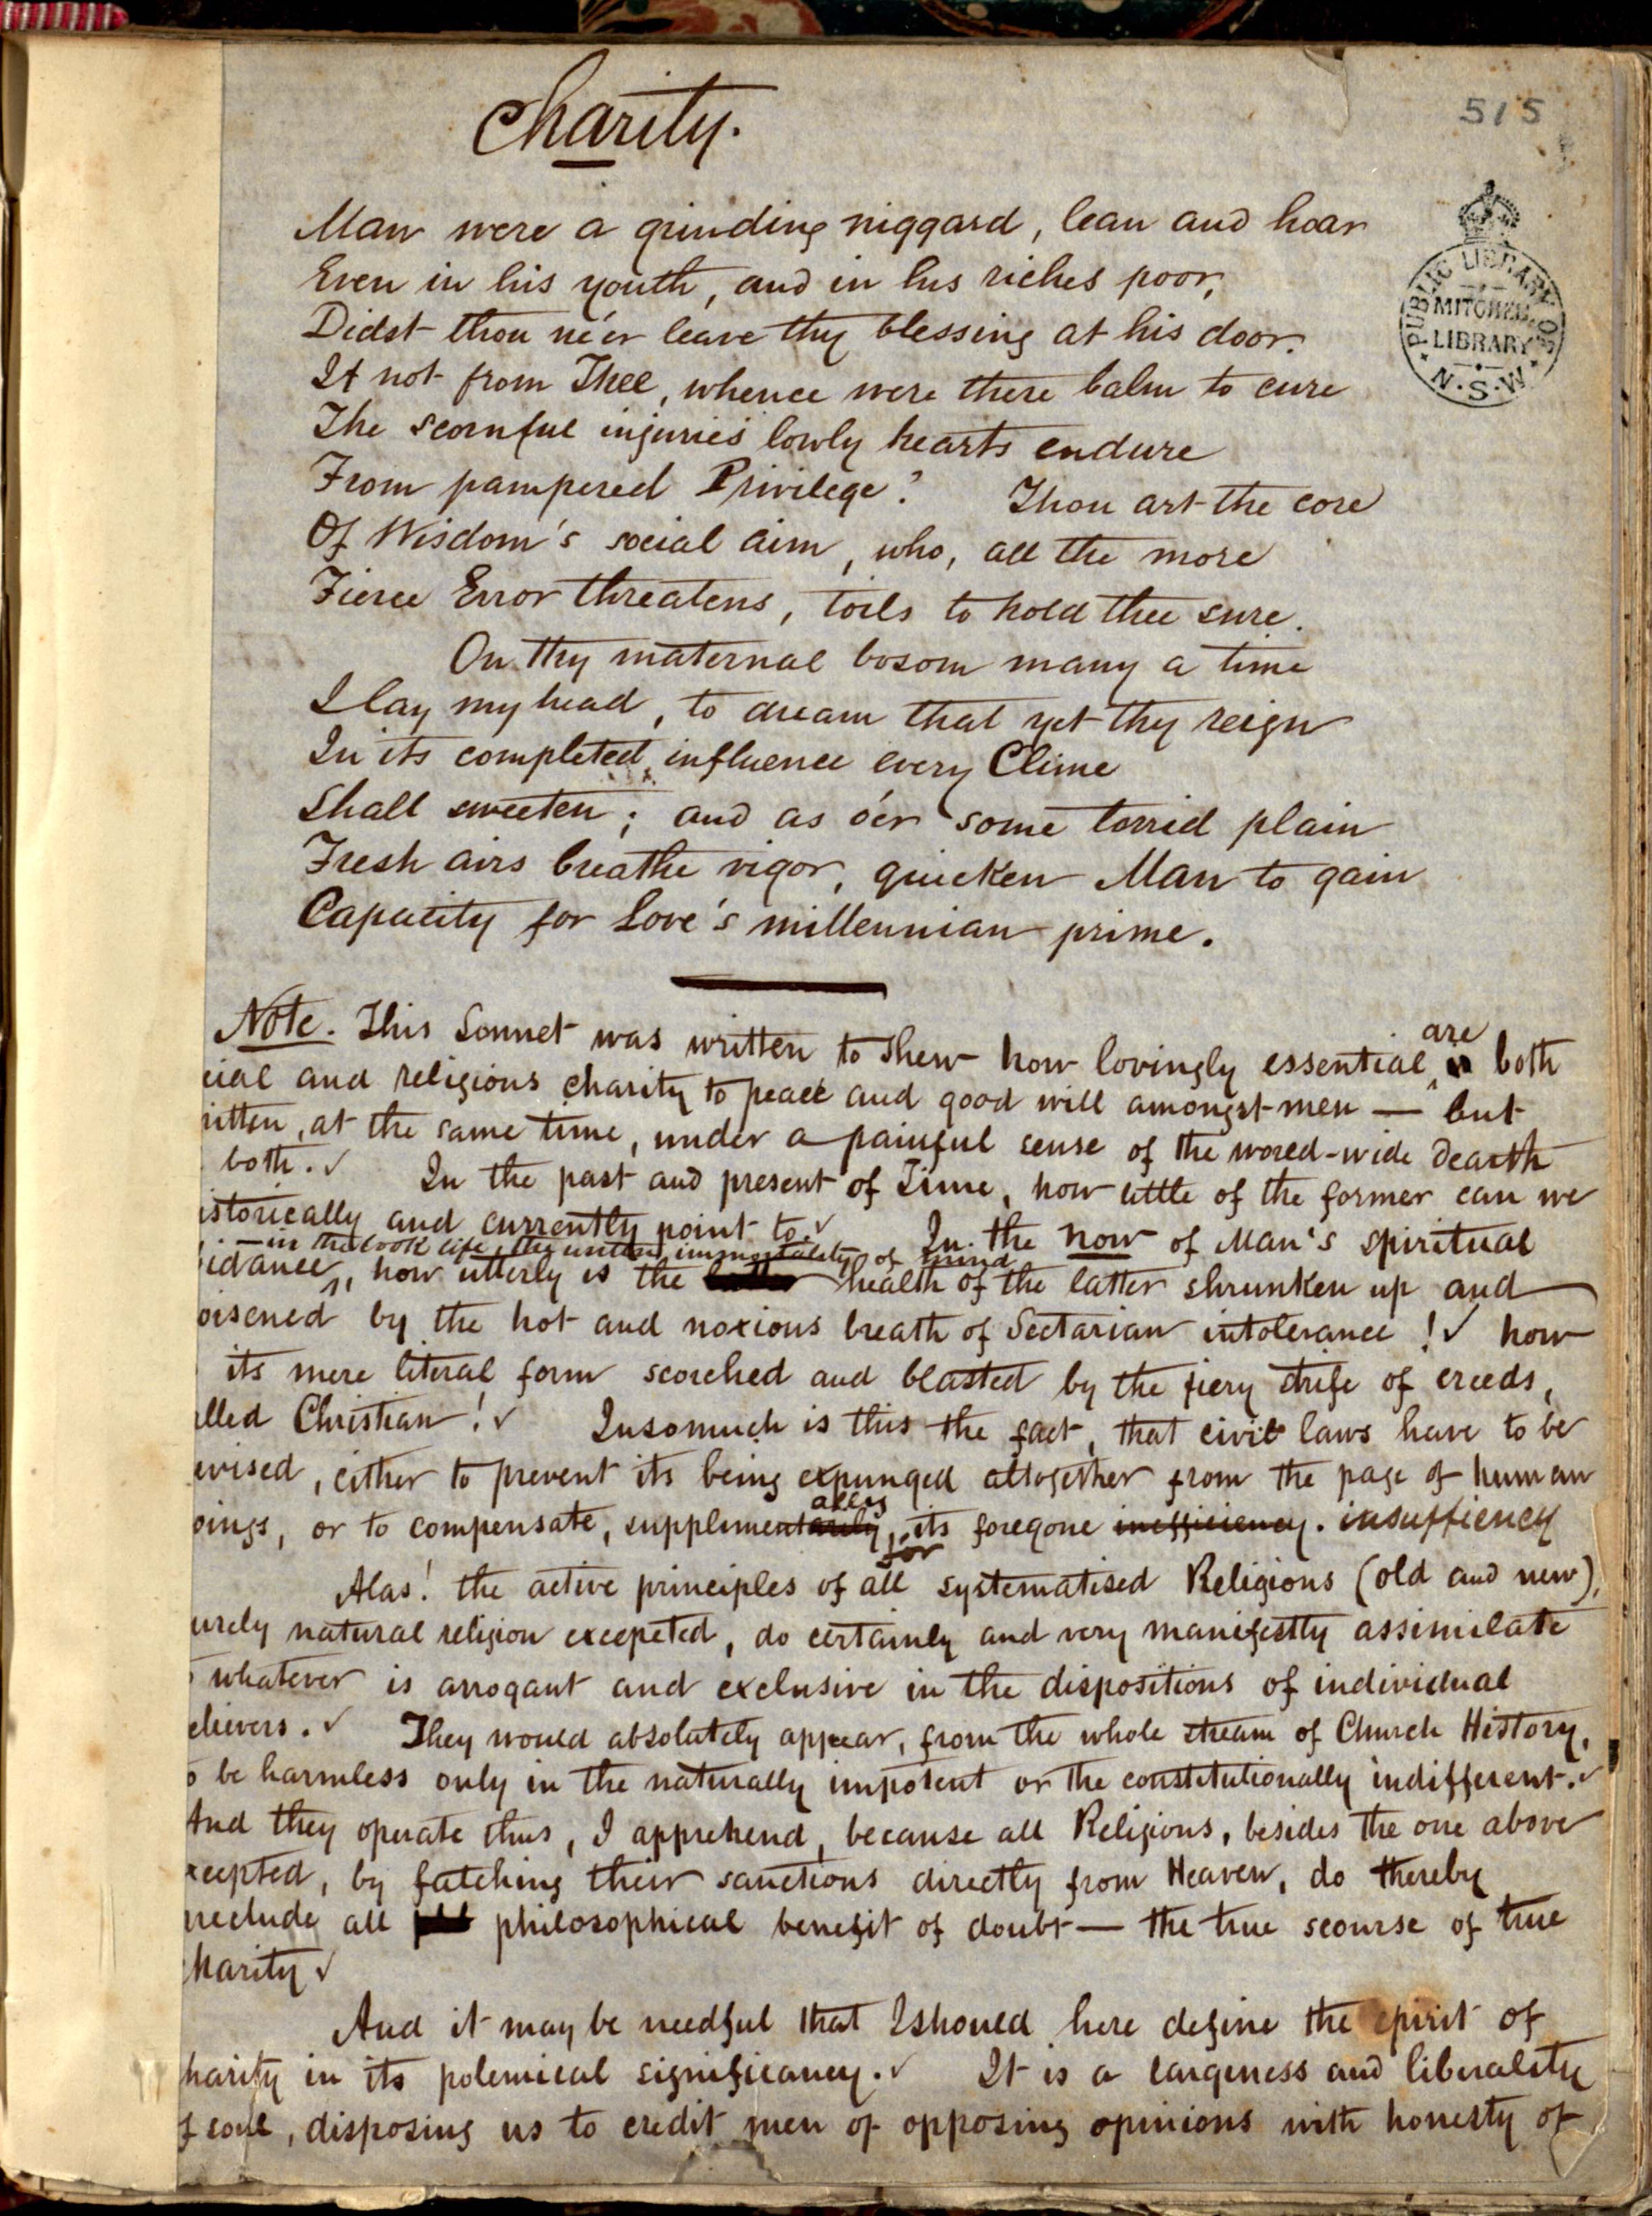 Charity.
515
PUBLIC LIBRARY OF
MITCHELL
LIBRARY
N·S·W
Man were a grinding niggard, lean and hoar
Even in his youth, and in his riches poor,
Didst thou ne'er leave thy blessing at his door.
If not from Thee, whence were there balm to cure
The scornful injuries lowly hearts endure
From pampered Privilege? Thou art the core
Of Wisdom's social aim, who, all the more
Fierce Error threatens, toils to hold thee sure.
On thy maternal bosom many a time
I lay my head, to dream that yet thy reign
In its completed influence every Clime
Shall sweeten; and as o'er some torrid plain
Fresh airs breathe vigor, quicken Man to gain
Capacity for Love's millennian prime.
Note. This Sonnet was written to shew how lovingly essential are both
cial and religious charity to peace and good will amongst men — but
ritten, at the same time, under a painful sense of the world-wide dearth
both. ✓ In the past and present of Time, how little of the former can we
istorically and currently point to. ✓ In the now of Man's spiritual
— in the book life, the written immortality of mind
idance, how utterly is the health of the latter shrunken up and
oisened by the hot and noxious breath of Sectarian intolerance! ✓ how
its mere literal form scorched and blasted by the fiery strife of creeds,
lled Christian! ✓ Insomuch is this the fact, that civil laws have to be
evised, either to prevent its being expunged altogether from the page of human
ally
oings, or to compensate, supplementarily, its foregone inefficiency. insuffiency
for
Alas! the active principles of all systematised Religions (old and new),
urely natural religion excepeted, do certainly and very manifestly assimilate
whatever is arrogant and exclusive in the dispositions of individual
elievers. ✓ They would absolutely appear, from the whole stream of Church History,
o be harmless only in the naturally impotent or the constitutionally indifferent. ✓
And they operate thus, I apprehend, because all Religions, besides the one above
xcepted, by fatching their sanctions directly from Heaven, do thereby
reclude all philosophical benefit of doubt — the true scourse of true
harity ✓
And it may be needful that I should here define the spirit of
harity in its polemical significancy. ✓ It is a largeness and liberality
f soul, disposing us to credit men of opposing opinions with honesty of